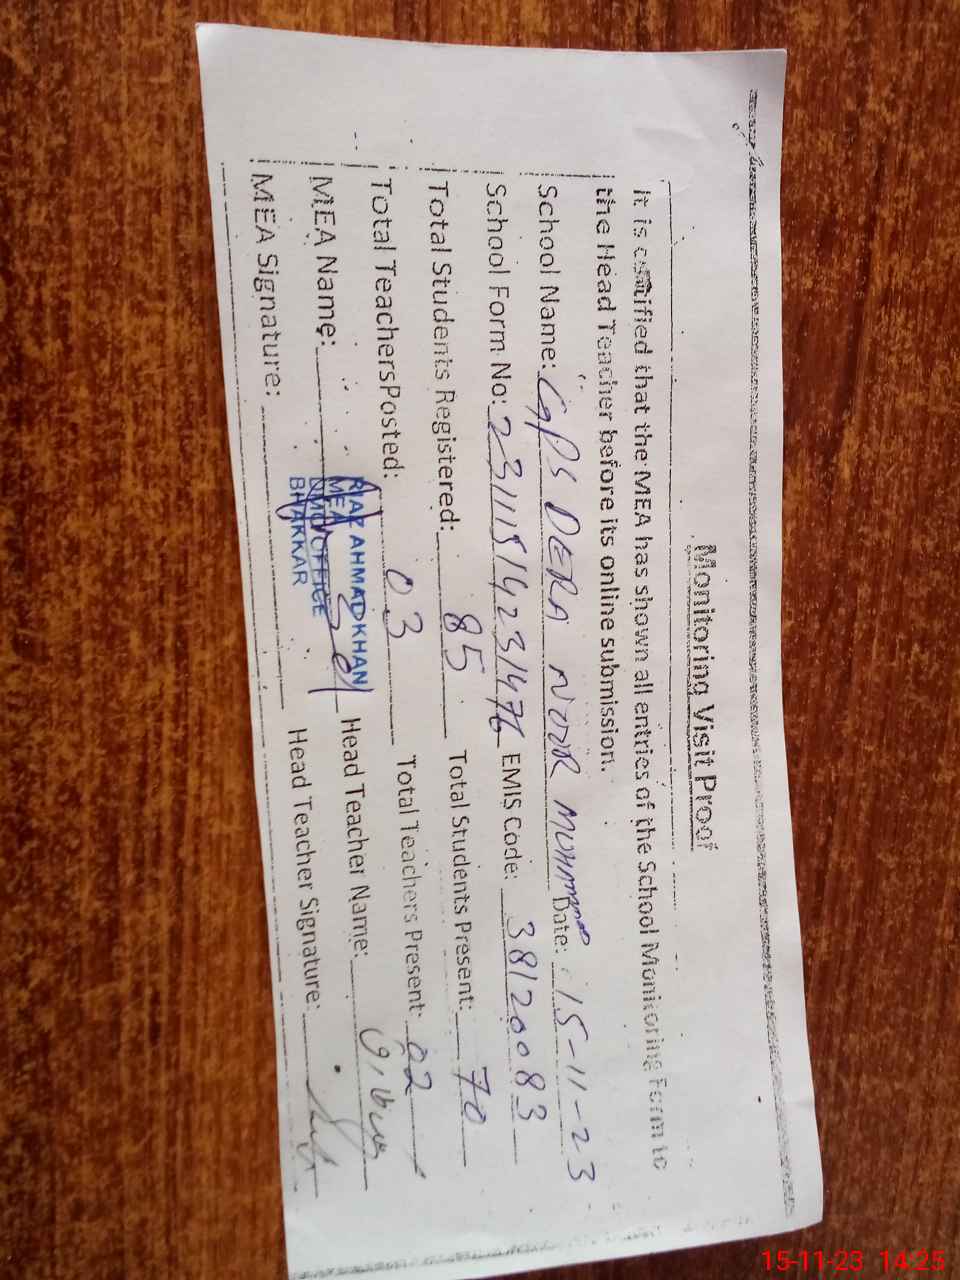 Monitoring Visit Proof
It is certified that the MEA has shown all entries of the School Monitoring Form to
the Head Teacher before its online submission.
School Name: GPS DERA NOOR MUHAMMAD Date: 15-11-23
School Form No: EMIS Code: 38120083
Total Students Registered: 85 Total Students Present: 70
Total TeachersPosted: 03 Total Teachers Present: 02
MEA Name: Head Teacher Name:
RIAZ AHMAD KHAN
MEA
DMO OFFICE
BHAKKAR
MEA Signature: Head Teacher Signature:
15-11-23 14:25